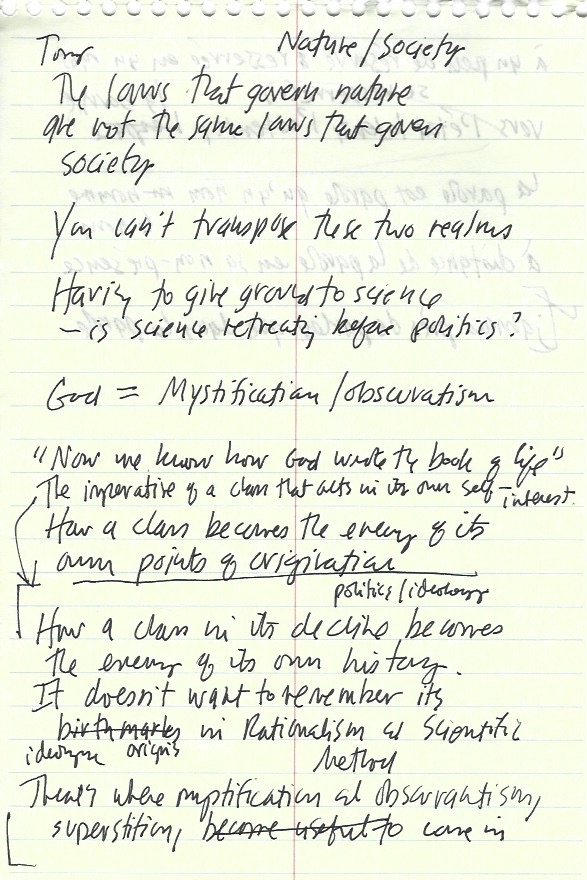 Tony Nature/Society
The laws that govern nature
are not the same laws that govern
society
You can't transpose these two realms
Having to give ground to science
– is science retreating before politics?
God = Mystification/obscuratism
"Now we know how God wrote the book of life"
The imperative of a class that acts in its own self-interest.
How a class becomes the enemy of its
own points of origination
politics/ideology
How a class in its decline becomes
the enemy of its own history.
It doesn't want to remember its
birthmarks in Rationalism and Scientific
origins Method
That's where mystification and obscurantism,
superstition, become useful to come in